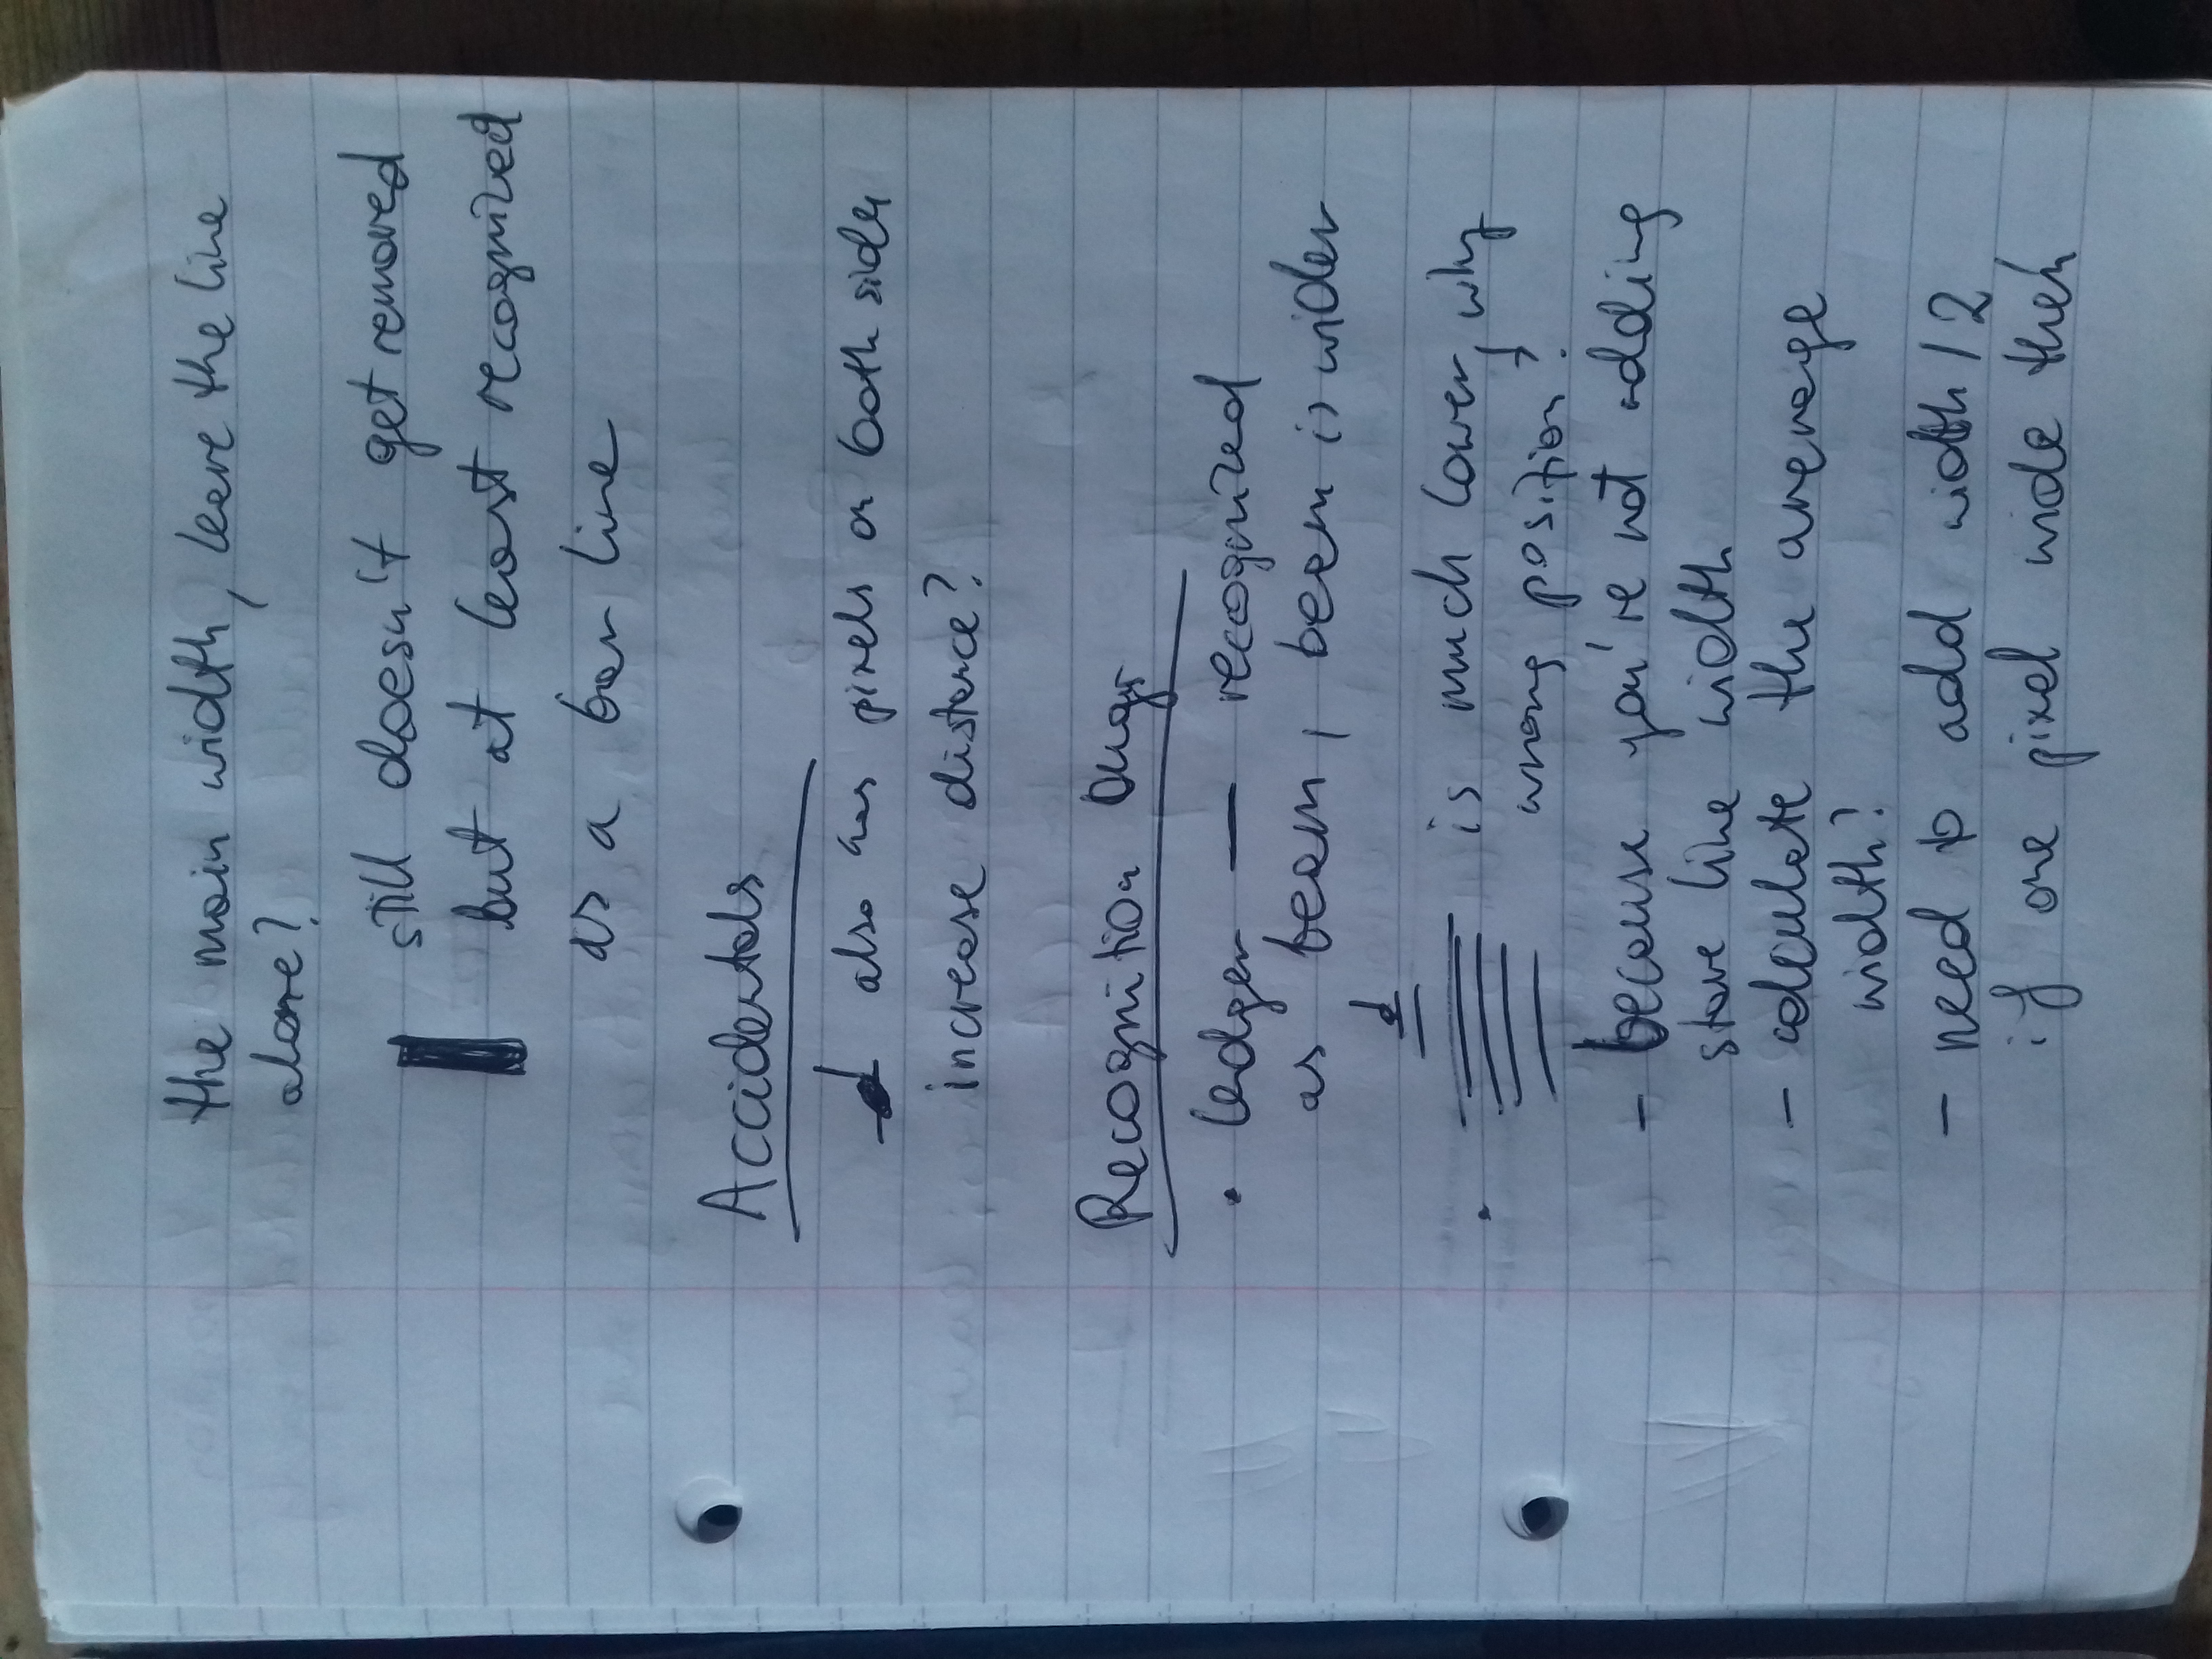 the main width, leave the line
alone?
still doesn't get removed
but at least recognized
as a bar line
Accidentals
also has pixels on both sides
increase distance?
Recognition bugs
• ledger — recognized
as beam, beam is wider
• is much lower, why
wrong position?
- because you're not adding
stave line width
- calculate the average
width?
- need to add width/2,
if one pixel wide then